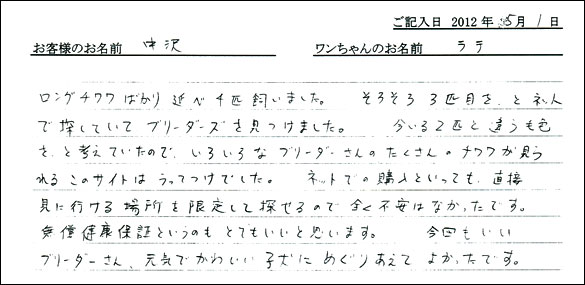 ご記入日 2012 年 5月 1 日
お客様のお名前 中沢 ワンちゃんのお名前 ララ
ロングチワワばかり 延べ4匹 飼いました。 そろそろ 3匹目を、と ネット
で探していて ブリーダーズを見つけました。 今いる2匹と違う毛色
を、と考えていたので、いろいろな ブリーダーさんの たくさんの チワワが見ら
れる このサイトは うってつけでした。 ネットでの購入といっても、直接
見に行ける 場所を 限定して探せるので 全く不安はなかったです。
無償健康保証というのも とてもいいと思います。 今回もいい
ブリーダーさん、元気でかわいい子犬に めぐりあえて よかったです。